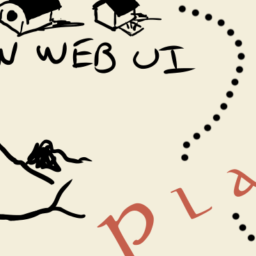 WEB UI
PLA